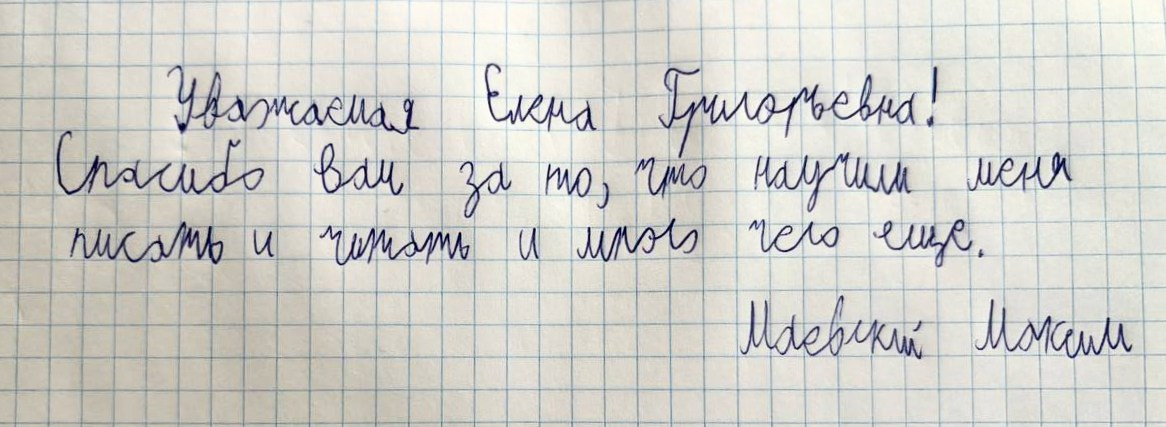 Уважаемая Елена Григорьевна!
Спасибо вам за то, что научили меня
писать и читать и много чего еще.
Маевский Максим